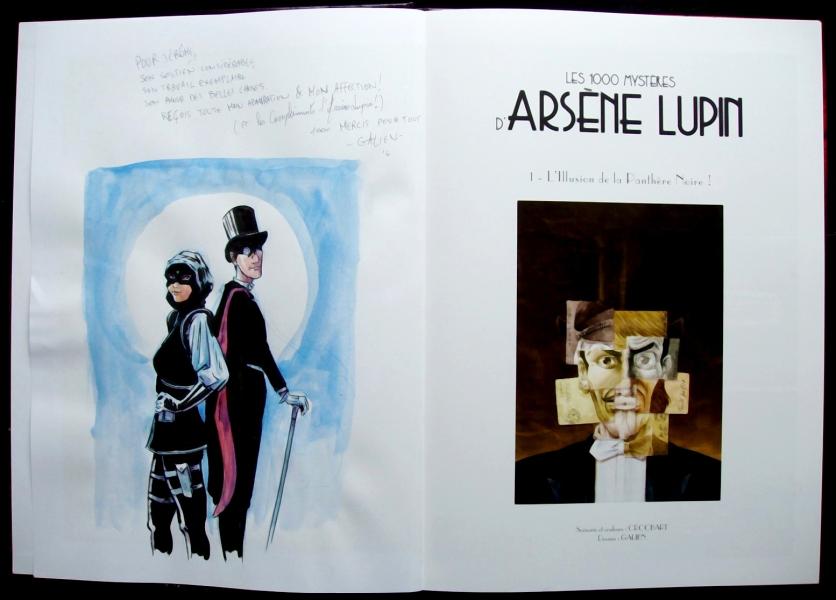 POUR JÉRÉMY,
SON SOUTIEN CONSIDÉRABLE,
SON TRAVAIL EXEMPLAIRE
SON AMOUR DES BELLES CHOSES
REÇOIS TOUTE MON ADMIRATION & MON AFFECTION!
(ET les Compliments d'Arsène Lupin!)
1000 MERCIS POUR TOUT
-GALIEN-
'16
LES 1000 MYSTÈRES
D'ARSÈNE LUPIN
1 - L'Illusion de la Panthère Noire !
Scénario et couleurs : CROCBART
Dessins : GALIEN